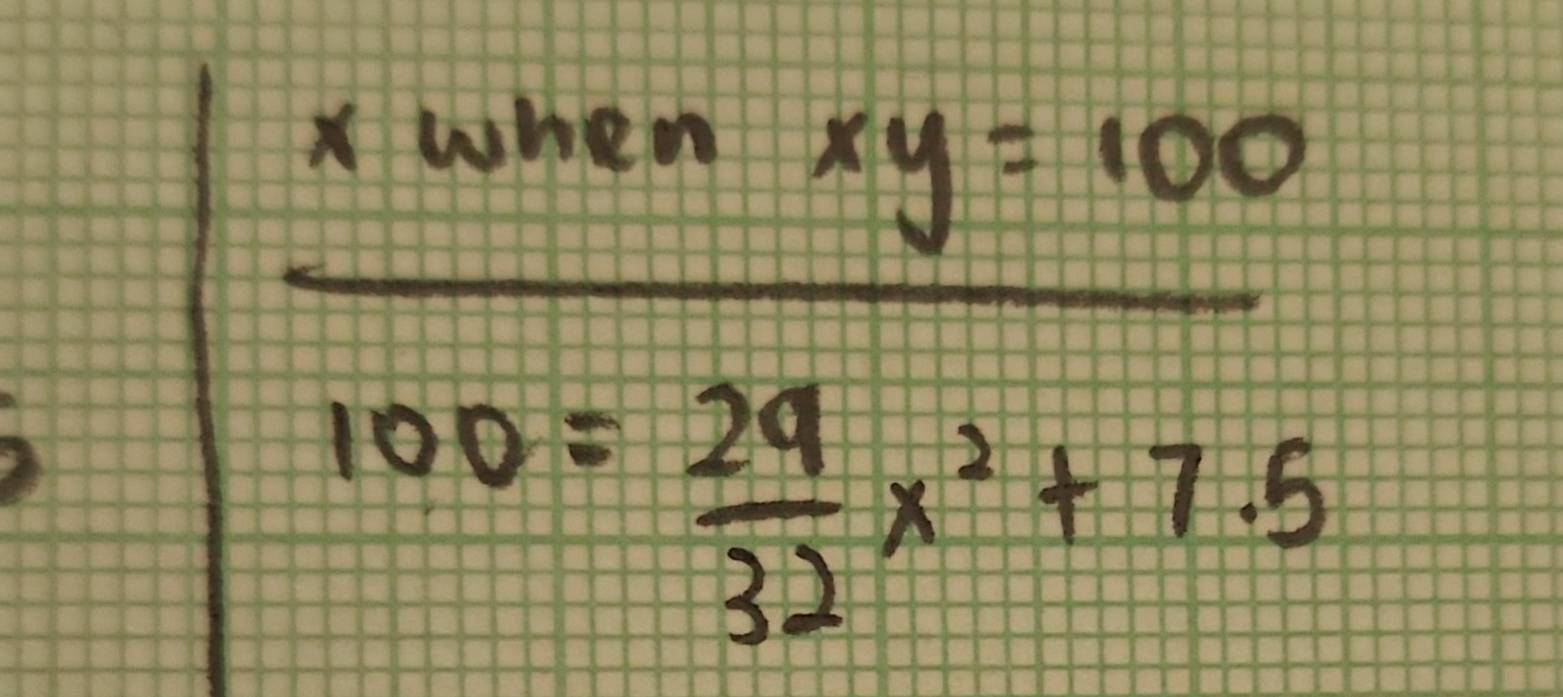 x when xy = 100
100 = 29/32 x² + 7.5